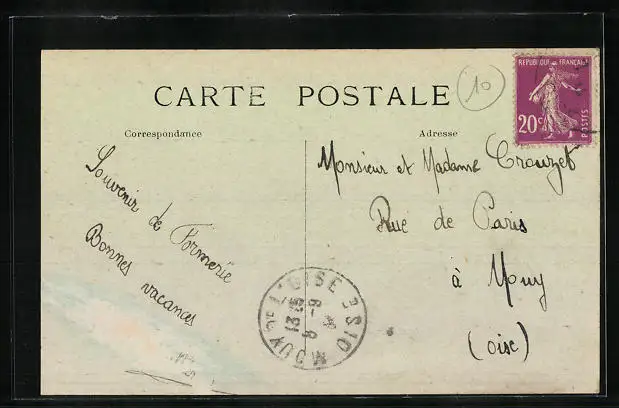 CARTE POSTALE
10
REPUBLIQUE FRANÇAISE
20c
POSTES
Correspondance
Adresse
Souvenir de Formerie
Bonnes vacances
Monsieur et Madame Crouzet
Rue de Paris
à Mouy
(oise)
MOUY-DE-L'OISE OISE
13